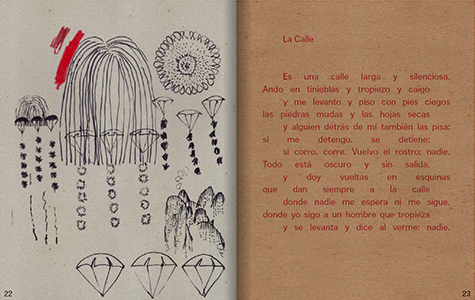 La Calle
Es una calle larga y silenciosa.
Ando en tinieblas y tropiezo y caigo
y me levanto y piso con pies ciegos
las piedras mudas y las hojas secas
y alguien detrás de mí también las pisa:
si me detengo, se detiene;
si corro, corre. Vuelvo el rostro: nadie.
Todo está oscuro y sin salida,
y doy vueltas en esquinas
que dan siempre a la calle
donde nadie me espera ni me sigue,
donde yo sigo a un hombre que tropieza
y se levanta y dice al verme: nadie.
22
23